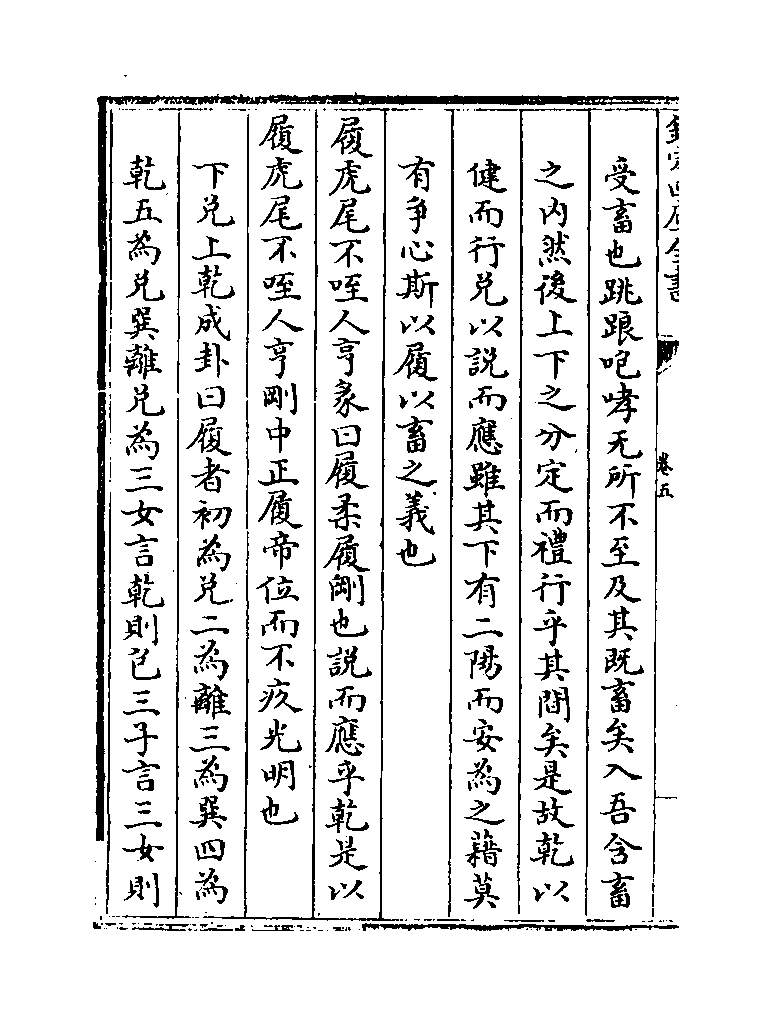 欽定四庫全書
卷五
受畜也跳踉咆哮无所不至及其既畜矣入吾含畜
之内然後上下之分定而禮行乎其間矣是故乾以
健而行兑以説而應雖其下有二陽而安為之藉莫
有争心斯以履以畜之義也
履虎尾不咥人亨彖曰履柔履剛也説而應乎乾是以
履虎尾不咥人亨剛中正履帝位而不疚光明也
下兑上乾成卦曰履者初為兑二為離三為巽四為
乾五為兑巽離兑為三女言乾則包三子言三女則